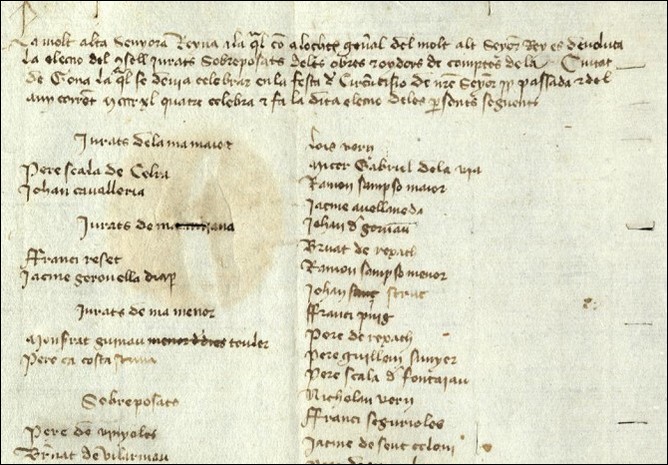 La molt alta Senyora Reyna a la qual com a lochtit general del molt alt Senyor Rey es devoluta
la eleccio del Consell Jurats Sobreposats deles obres e oydors de comptes de la Ciutat
de Gerona la qual se devia celebrar en la festa de Circumcisio de nostre Senyor prop passada e del
any corrent Mccccxl quatre celebra e fa la dita eleccio deles persones seguents
Jurats dela ma maior
Pere scala de Celra
Johan cavalleria
Jurats de ma mijana
ffranci reset
Jacme gerovella drap
Jurats de ma menor
Monsrat guinau menor d dies teuler
Pere ça costa
Sobreposats
Pere de vinyoles
Bernat de vilarmau
Lois vern
Micer Gabriel dela via
Ramon sampso maior
Jacme avellaneda
Johan de
Bernat de repach
Ramon sampso menor
Johan struc
ffranci puig
Pere de repach
Pere guillem sunyer
Pere scala d
Nicholau vern
ffranci segurioles
Jacme de sent celoni